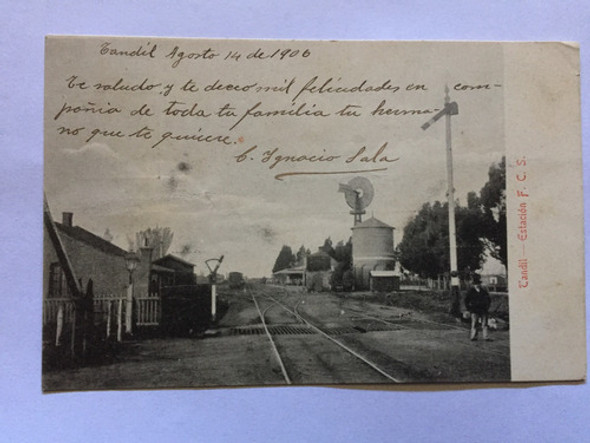 Tandil Agosto 14 de 1906
Te saludo y te deceo mil felicidades en com-
pañia de toda tu familia tu herma-
no que te quiere.
C. Ignacio Sala
Tandil — Estación F. C. S.